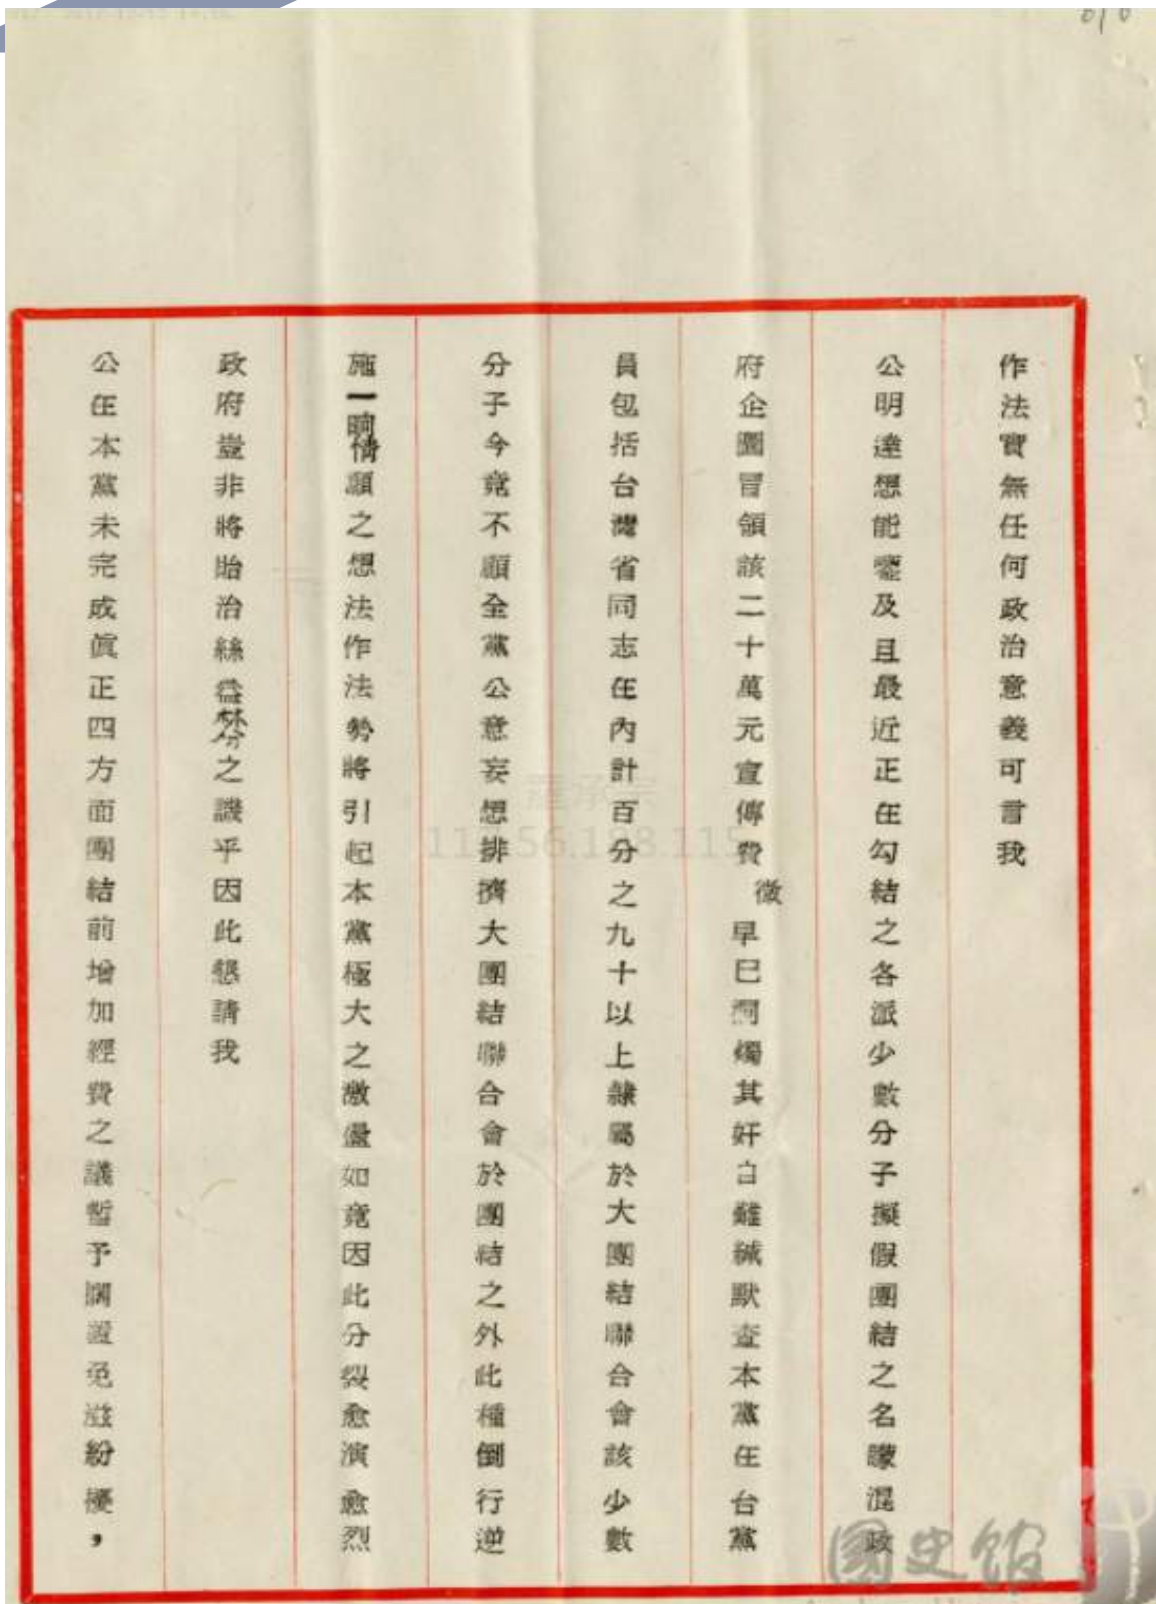 作法實無任何政治意義可言我
公明達想能鑒及且最近正在勾結之各派少數分子擬假團結之名矇混政
府企圖冒領該二十萬元宣傳費徵早已洞燭其奸自難緘默查本黨在台黨
員包括台灣省同志在內計百分之九十以上隸屬於大團結聯合會該少數
分子今竟不顧全黨公意妄想排擠大團結聯合會於團結之外此種倒行逆
施一晌情願之想法作法勢將引起本黨極大之激盪如竟因此分裂愈演愈烈
政府豈非將貽治絲益棼之譏乎因此懇請我
公在本黨未完成眞正四方面團結前增加經費之議暫予擱置免滋紛擾，
國史館